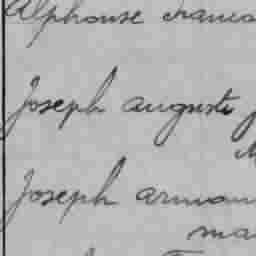 Alphonse
Joseph auguste
Joseph arman
ma